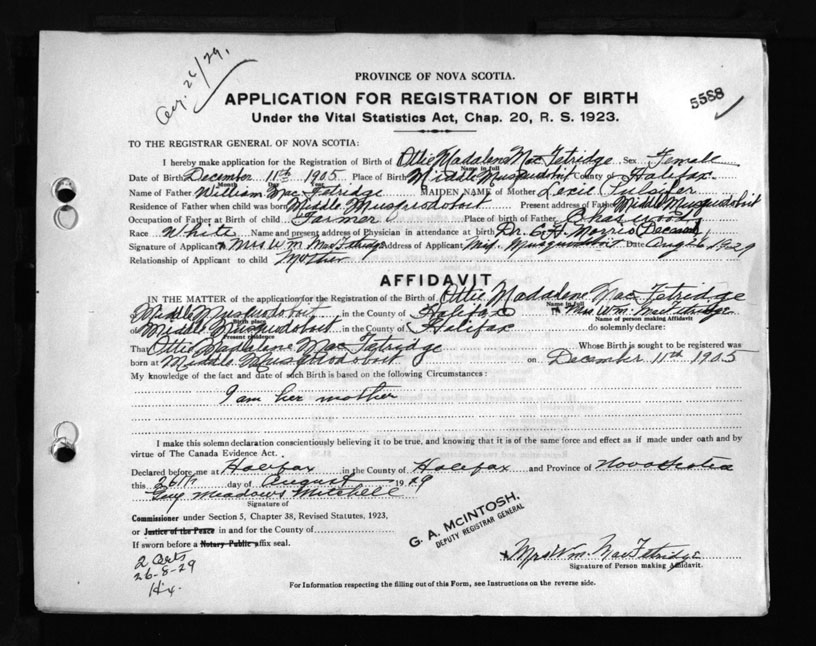 Aug. 26/29.
PROVINCE OF NOVA SCOTIA.
5588
APPLICATION FOR REGISTRATION OF BIRTH
Under the Vital Statistics Act, Chap. 20, R. S. 1923.
TO THE REGISTRAR GENERAL OF NOVA SCOTIA:
I hereby make application for the Registration of Birth of Ottie Madalene Mac Fetridge Sex Female
Name in full
Date of Birth December 11th 1905 Place of Birth Middle Musquodoboit County of Halifax
Month Day Year
Name of Father William Mac Fetridge MAIDEN NAME of Mother Lexie Fulsifer
Residence of Father when child was born Middle Musquodoboit Present address of Father Middle Musquodoboit
Occupation of Father at Birth of child Farmer Place of birth of Father Chaswood
Race White Name and present address of Physician in attendance at birth Dr. C. H. Morris (Deceased)
Signature of Applicant Mrs Wm MacFetridge Address of Applicant Mid. Musquodoboit Date Aug 26 1929
Relationship of Applicant to child Mother
AFFIDAVIT
IN THE MATTER of the application for the Registration of the Birth of Ottie Madalene Mac Fetridge
Name in full
Middle Musquodoboit in the County of Halifax I Mrs Wm. MacFetridge
Birth place Name of person making Affidavit
of Middle Musquodoboit in the County of Halifax do solemnly declare:
Present residence
That Ottie Madalene Mac Fetridge Whose Birth is sought to be registered was
born at Middle Musquodoboit on December 11th 1905
My knowledge of the fact and date of such Birth is based on the following Circumstances:
I am her mother
I make this solemn declaration conscientiously believing it to be true, and knowing that it is of the same force and effect as if made under oath and by
virtue of The Canada Evidence Act.
Declared before me at Halifax in the County of Halifax and Province of Nova Scotia
this 26th day of August 1929
Guy Meadows Mitchell
Signature of
Commissioner under Section 5, Chapter 38, Revised Statutes, 1923,
or Justice of the Peace in and for the County of
If sworn before a Notary Public affix seal.
G. A. McINTOSH,
DEPUTY REGISTRAR GENERAL
Mrs Wm. MacFetridge
Signature of Person making Affidavit.
2 Certs
26-8-29
Hx.
For Information respecting the filling out of this Form, see Instructions on the reverse side.